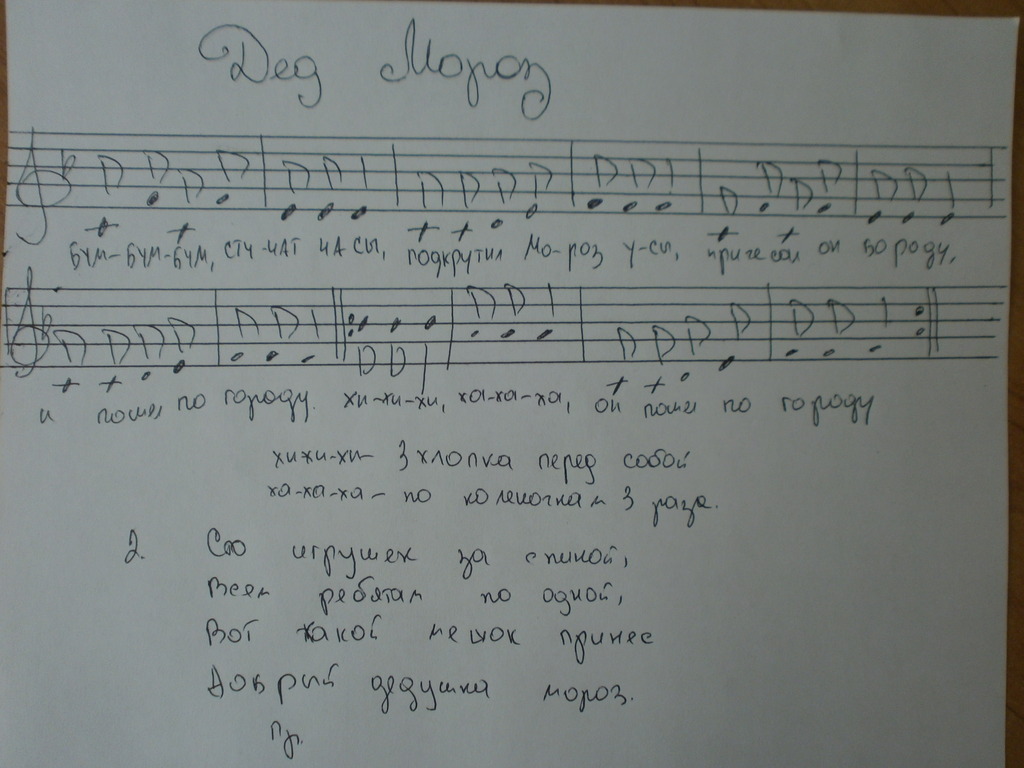 Дед Мороз
Бум-бум-бум, стучат часы, подкрутил Мо-роз у-сы, причесал он бороду,
и пошел по городу. хи-хи-хи, ха-ха-ха, он пошел по городу
хихи-хи- 3 хлопка перед собой
ха-ха-ха- по коленочкам 3 раза.
2. Сто игрушек за спиной,
Всем ребятам по одной,
Вот какой мешок принес
Добрый дедушка мороз.
пр.